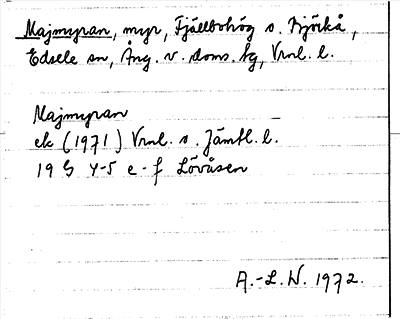 Majmyran, myr, Fjällbohög s. Björkå,
Edsele sn, Ång. v. doms. tg, Vrnl. l.
Majmyran
ek (1971) Vrnl. o. Jämtl. l.
19 G 4-5 e-f Lövåsen
A.-L. W. 1972.